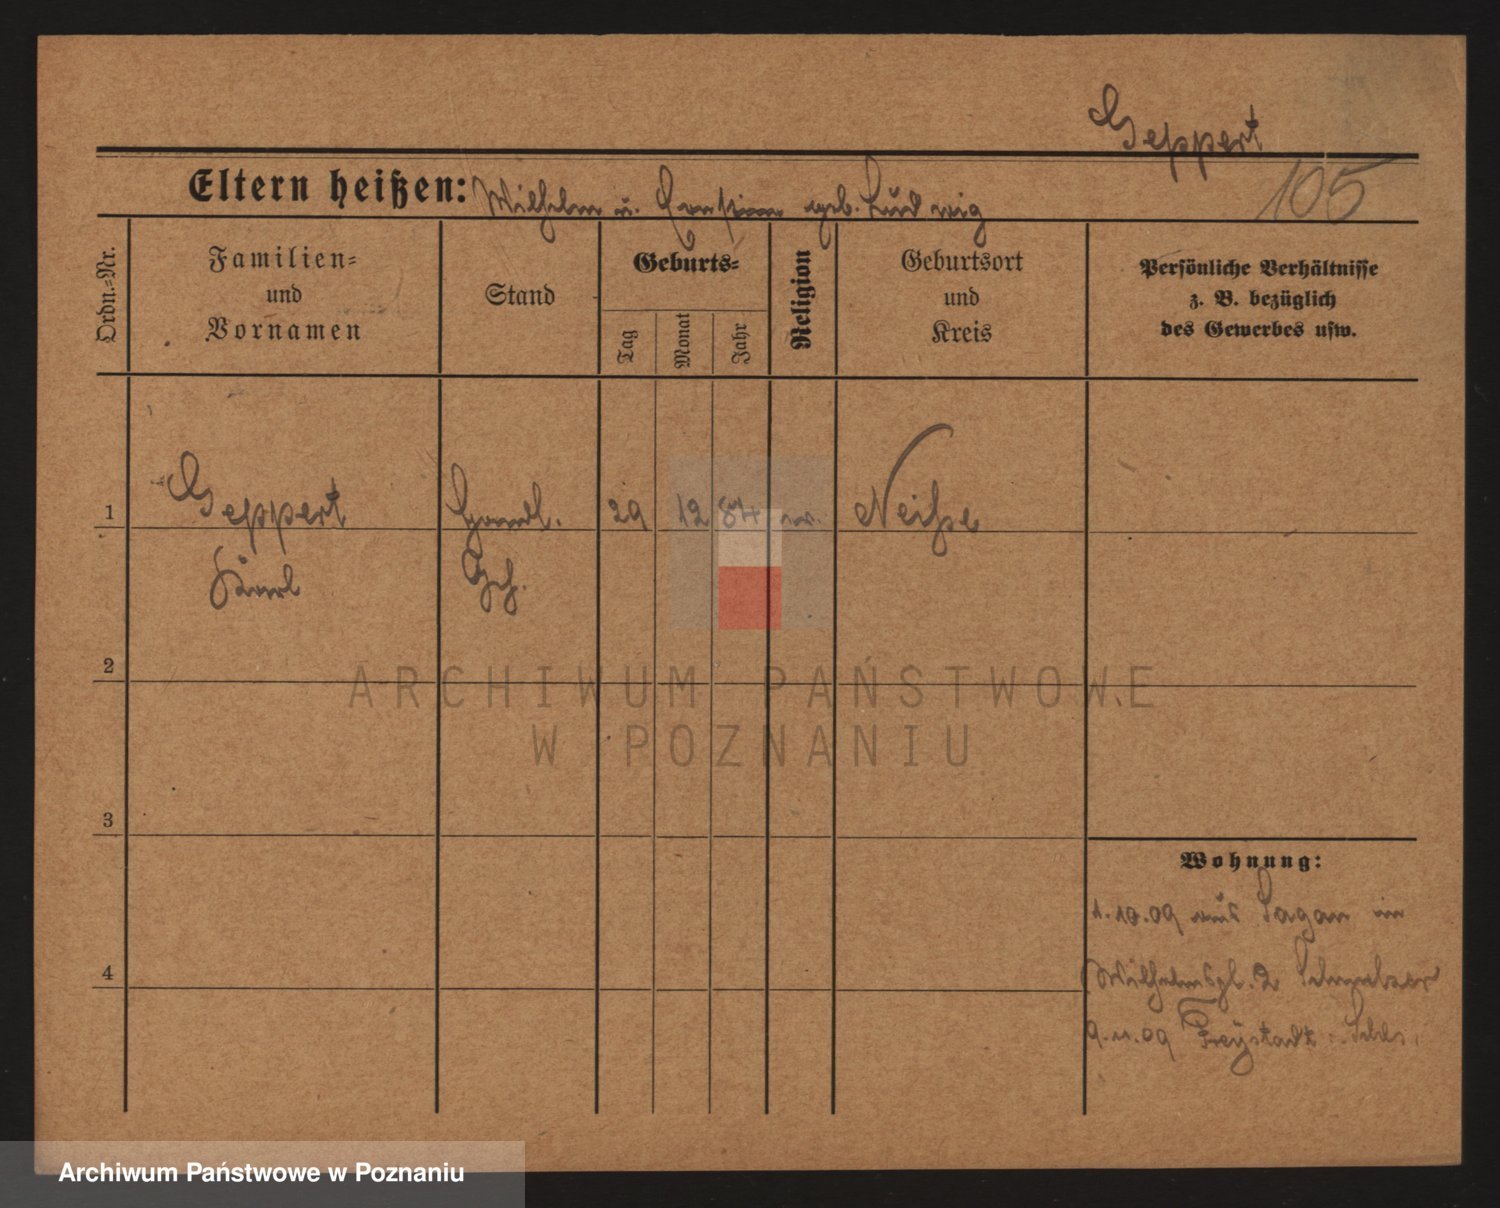 Geppert
105
Eltern heißen: Wilhelm u. geb. Ludwig
Ordn.-Nr.
Familien-
und
Vornamen
Stand
Geburts-
Tag
Monat
Jahr
Religion
Geburtsort
und
Kreis
Persönliche Verhältnisse
z. B. bezüglich
des Gewerbes usw.
1
Geppert
Karl
Handl.
Gh.
29
12
84
Neiße
2
ARCHIWUM PAŃSTWOWE
W POZNANIU
3
Wohnung:
1.10.09 aus Sagan in
4
Wilhelmspl. 2
9.11.09 Freystadt Schles.
Archiwum Państwowe w Poznaniu